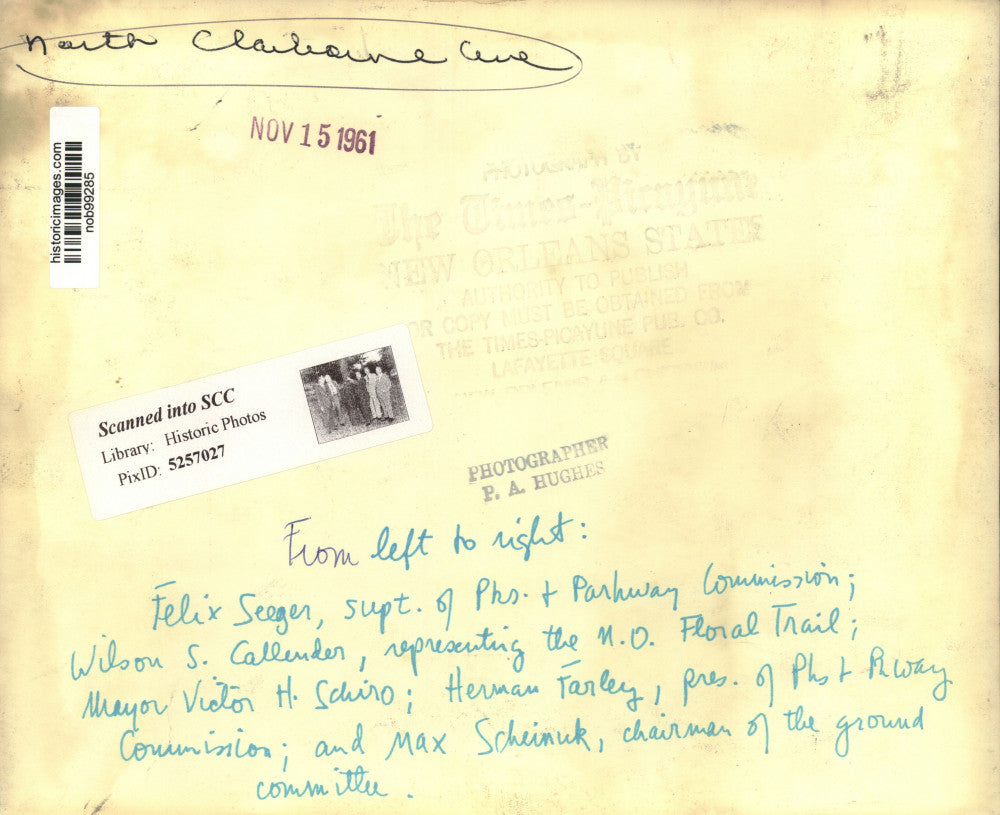 North Claiborne Ave
NOV 15 1961
historicimages.com
nob99285
PHOTOGRAPH BY
The Times-Picayune
NEW ORLEANS STATES
AUTHORITY TO PUBLISH
OR COPY MUST BE OBTAINED FROM
THE TIMES-PICAYUNE PUB. CO.
LAFAYETTE SQUARE
Scanned into SCC
Library: Historic Photos
PixID: 5257027
PHOTOGRAPHER
P. A. HUGHES
From left to right:
Felix Seeger, supt. of Pks. + Parkway Commission;
Wilson S. Callender, representing the N.O. Floral Trail;
Mayor Victor H. Schiro; Herman Farley, pres. of Pks + Pkway
Commission; and Max Scheinuk, chairman of the ground
committee.